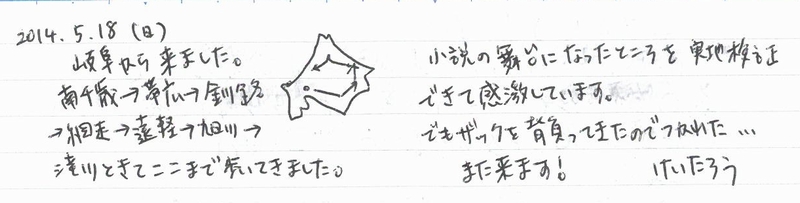 2014.5.18（日）
岐阜から来ました。
南千歳→帯広→釧路
→網走→遠軽→旭川→
滝川ときてここまで歩いてきました。
小説の舞台になったところを実地検証
できて感激しています。
でもザックを背負ってきたのでつかれた…
また来ます！　けいたろう